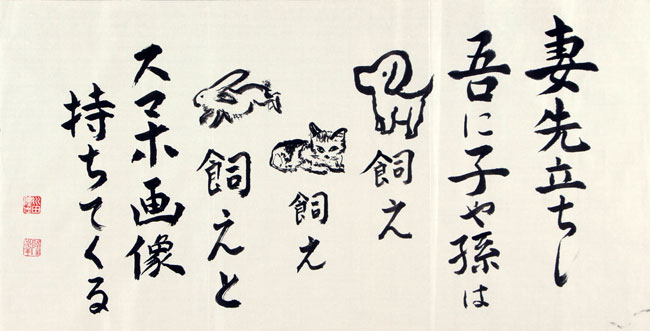 妻先立ちし
吾に子や孫は
飼え
飼え
飼えと
スマホ画像
持ちてくる